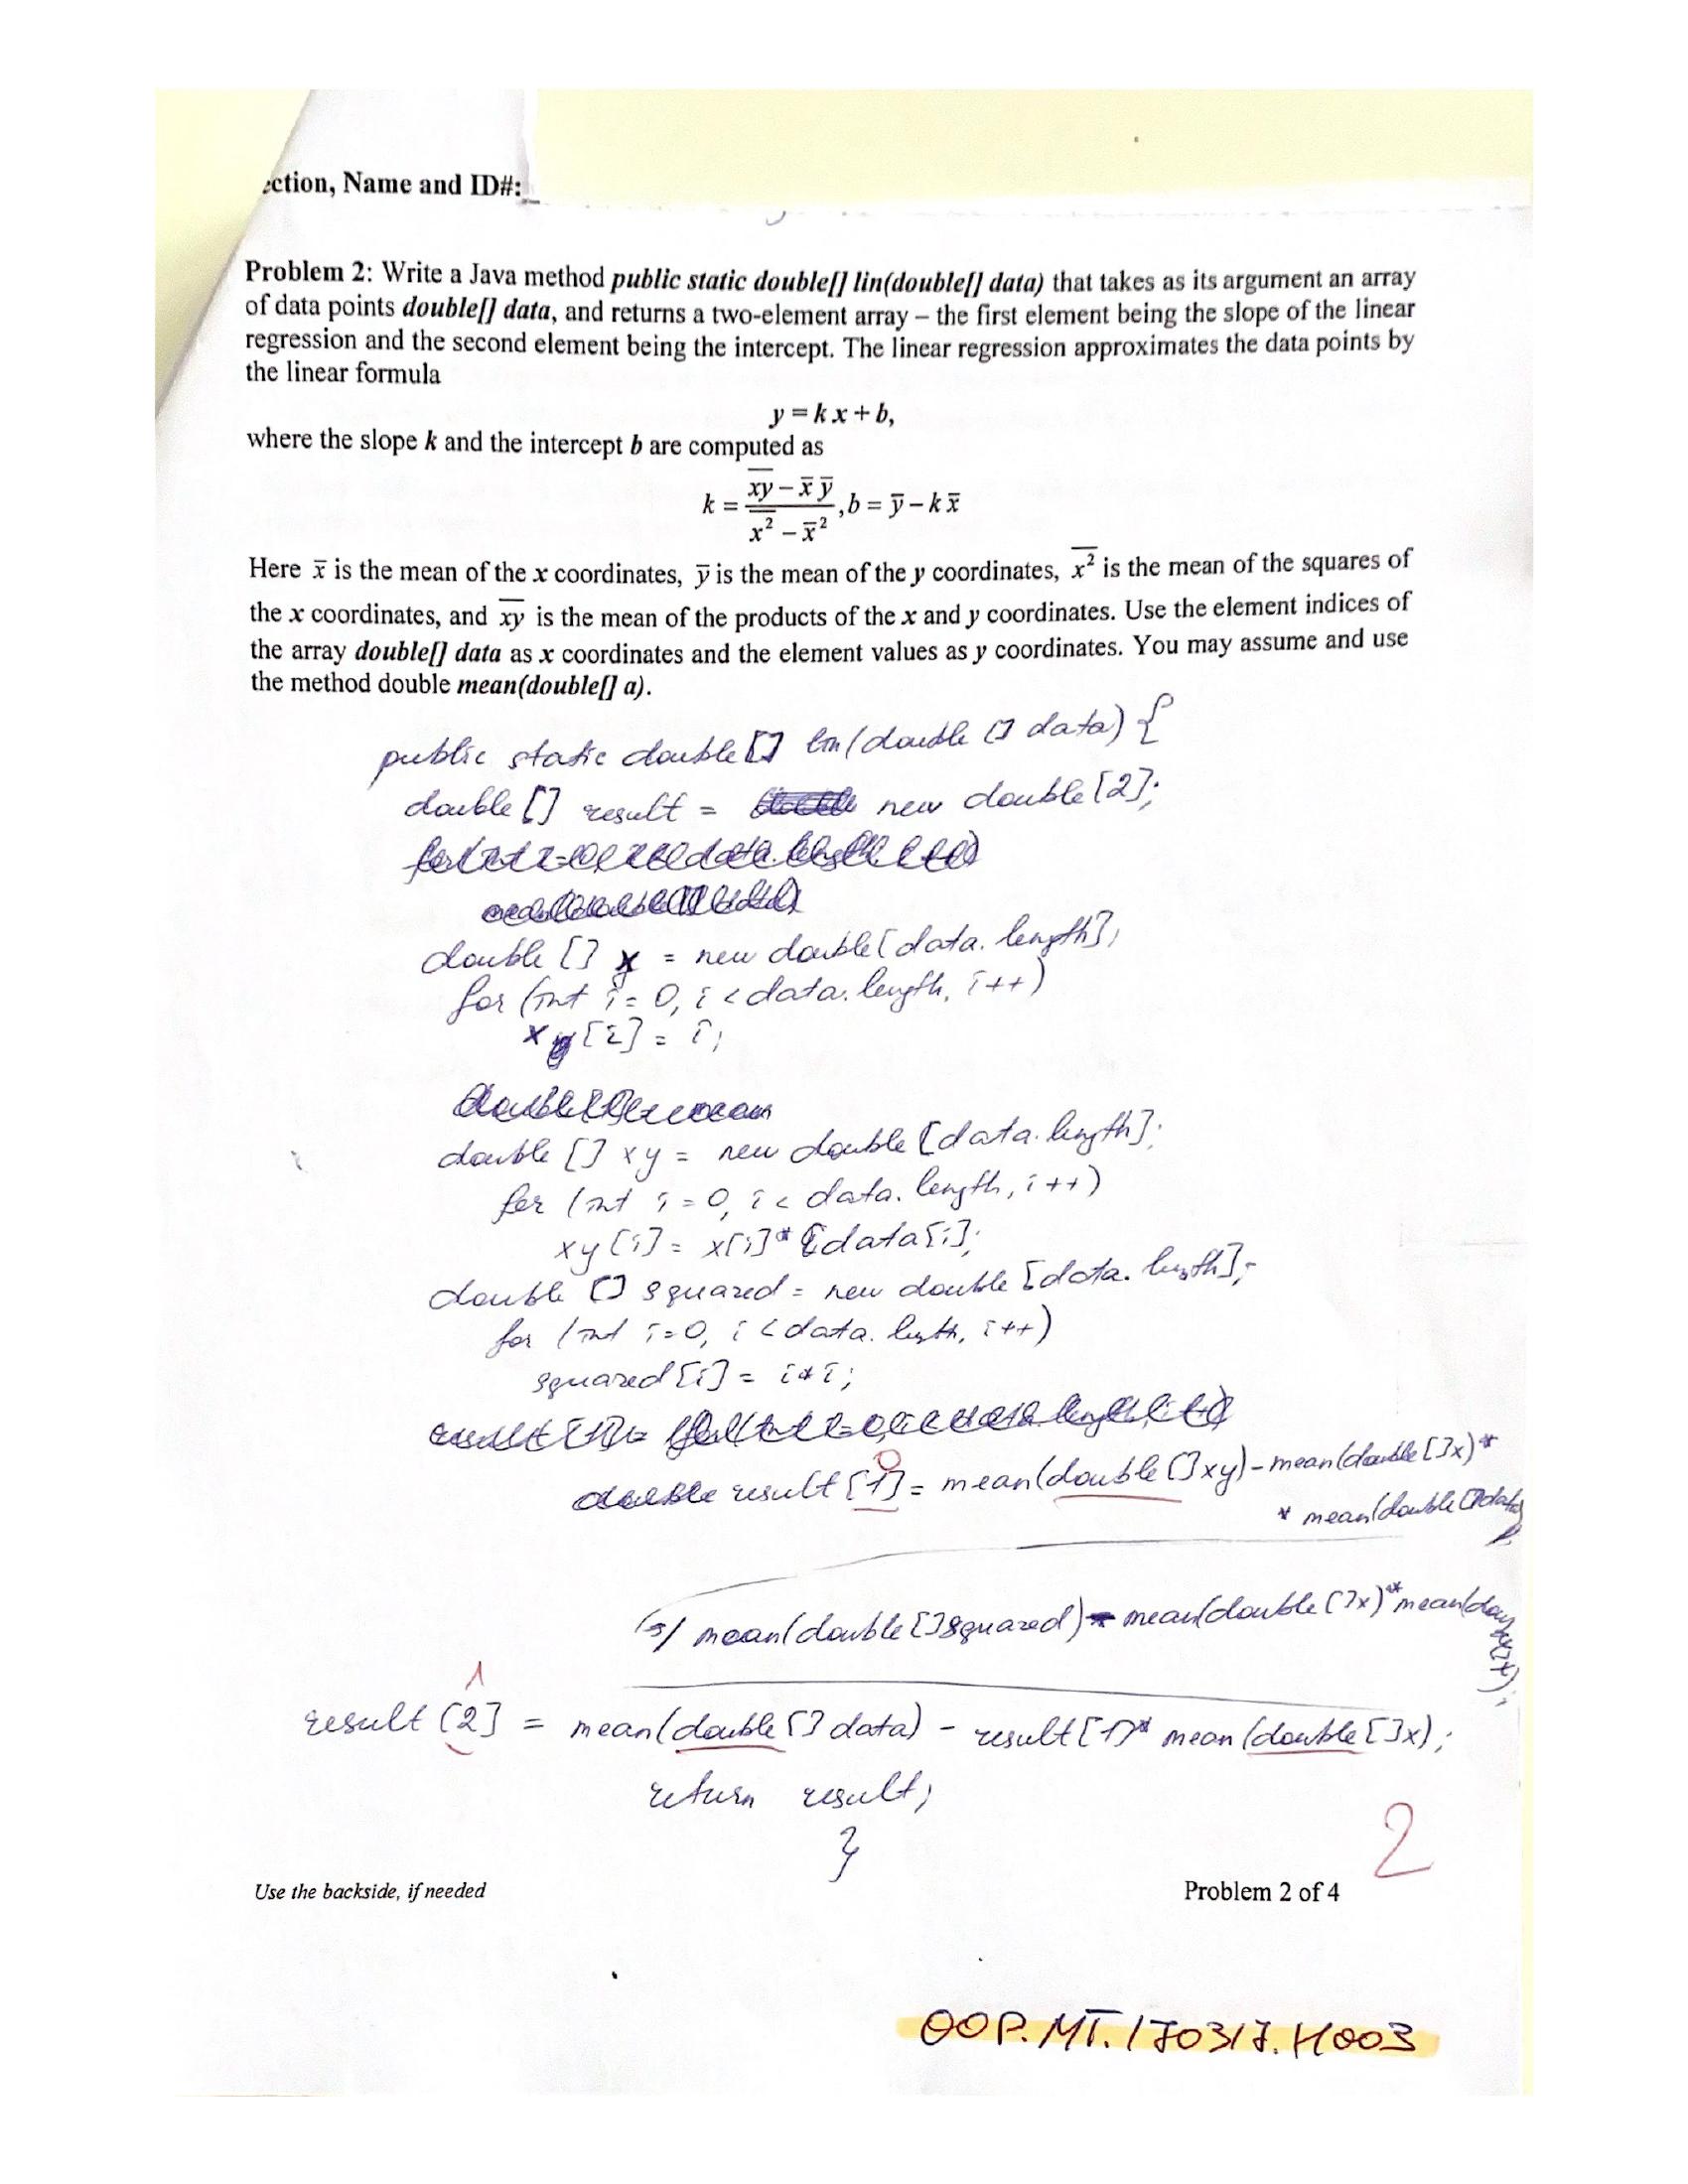 ection, Name and ID#:_
Problem 2: Write a Java method public static double[] lin(double[] data) that takes as its argument an array
of data points double[] data, and returns a two-element array – the first element being the slope of the linear
regression and the second element being the intercept. The linear regression approximates the data points by
the linear formula
y = k x + b,
where the slope k and the intercept b are computed as
k = (x̅y̅ – x̅ y̅) / (x̅²̅ – x̅²), b = y̅ – k x̅
Here x̅ is the mean of the x coordinates, y̅ is the mean of the y coordinates, x̅²̅ is the mean of the squares of
the x coordinates, and x̅y̅ is the mean of the products of the x and y coordinates. Use the element indices of
the array double[] data as x coordinates and the element values as y coordinates. You may assume and use
the method double mean(double[] a).
public static double[] lin(double [] data) {
double [] result = new double[2];
double [] x = new double[data.length];
for (int i = 0, i < data.length, i++)
x [i] = i;
double [] xy = new double [data.length];
for (int i = 0, i < data.length, i++)
xy [i] = x[i] * data[i];
double [] squared = new double [data.length];
for (int i=0, i < data.length, i++)
squared [i] = i*i;
0
result [1] = mean(double []xy) - mean(double []x) *
* mean(double []data)
/ mean(double []squared) - mean(double []x) * mean(double []x);
1
result [2] = mean(double [] data) - result [1] * mean (double []x);
return result;
}
2
Use the backside, if needed
Problem 2 of 4
OOP.MT.170317.H003